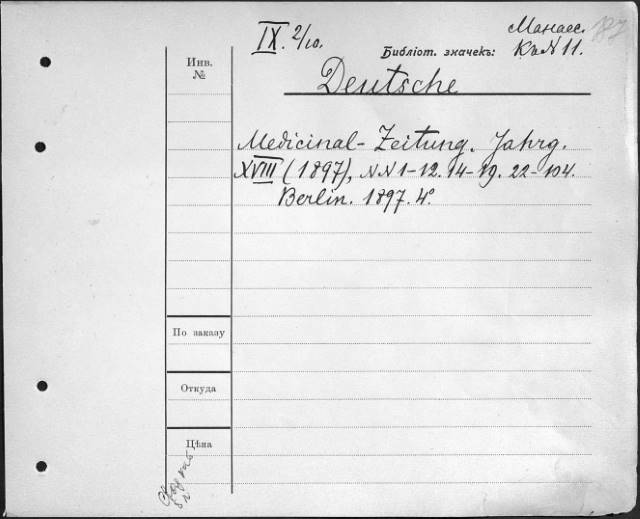 Манасс.
87
IX. 2/10.
Библіот. значекъ: Къ N 11.
Инв.
№
Deutsche
Medicinal-Zeitung. Jahrg.
XVIII (1897), NN 1-12. 14-19. 22-104.
Berlin. 1897. 4°.
По заказу
Откуда
Цѣна